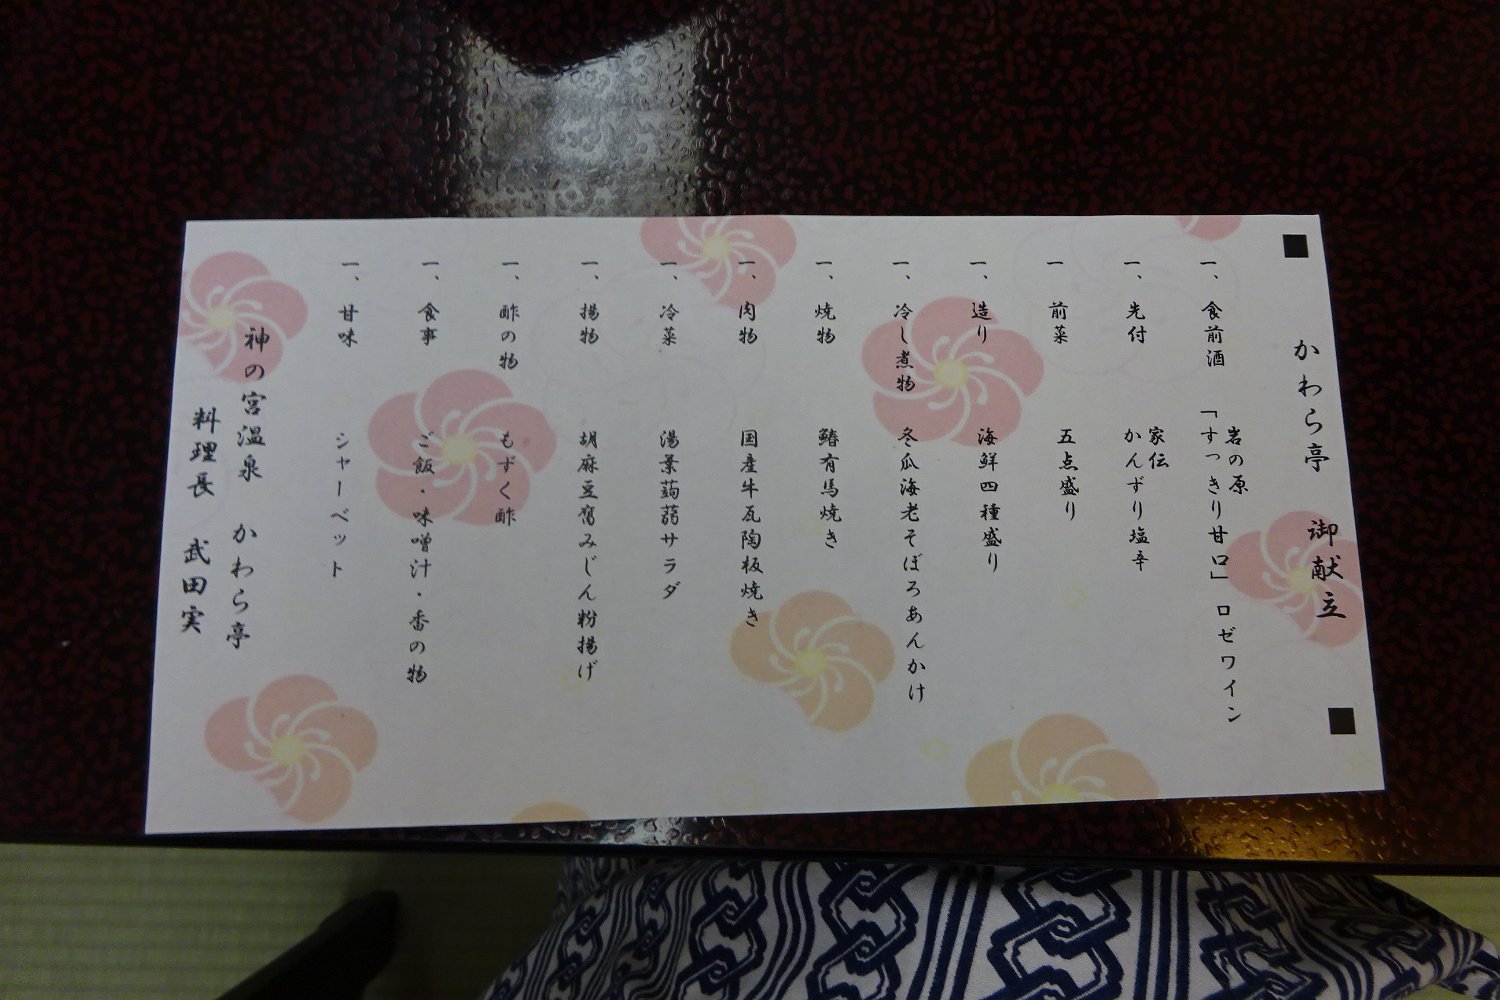 ■ かわら亭 御献立 ■
一、食前酒 岩の原
「すっきり甘口」ロゼワイン
一、先付 家伝
かんずり塩辛
一 前菜 五点盛り
一、造り 海鮮四種盛り
一、冷し煮物 冬瓜海老そぼろあんかけ
一、焼物 鰆有馬焼き
一、肉物 国産牛瓦陶板焼き
一、冷菜 湯葉蒟蒻サラダ
一、揚物 胡麻豆腐みじん粉揚げ
一、酢の物 もずく酢
一、食事 ご飯・味噌汁・香の物
一、甘味 シャーベット
神の宮温泉 かわら亭
料理長 武田実